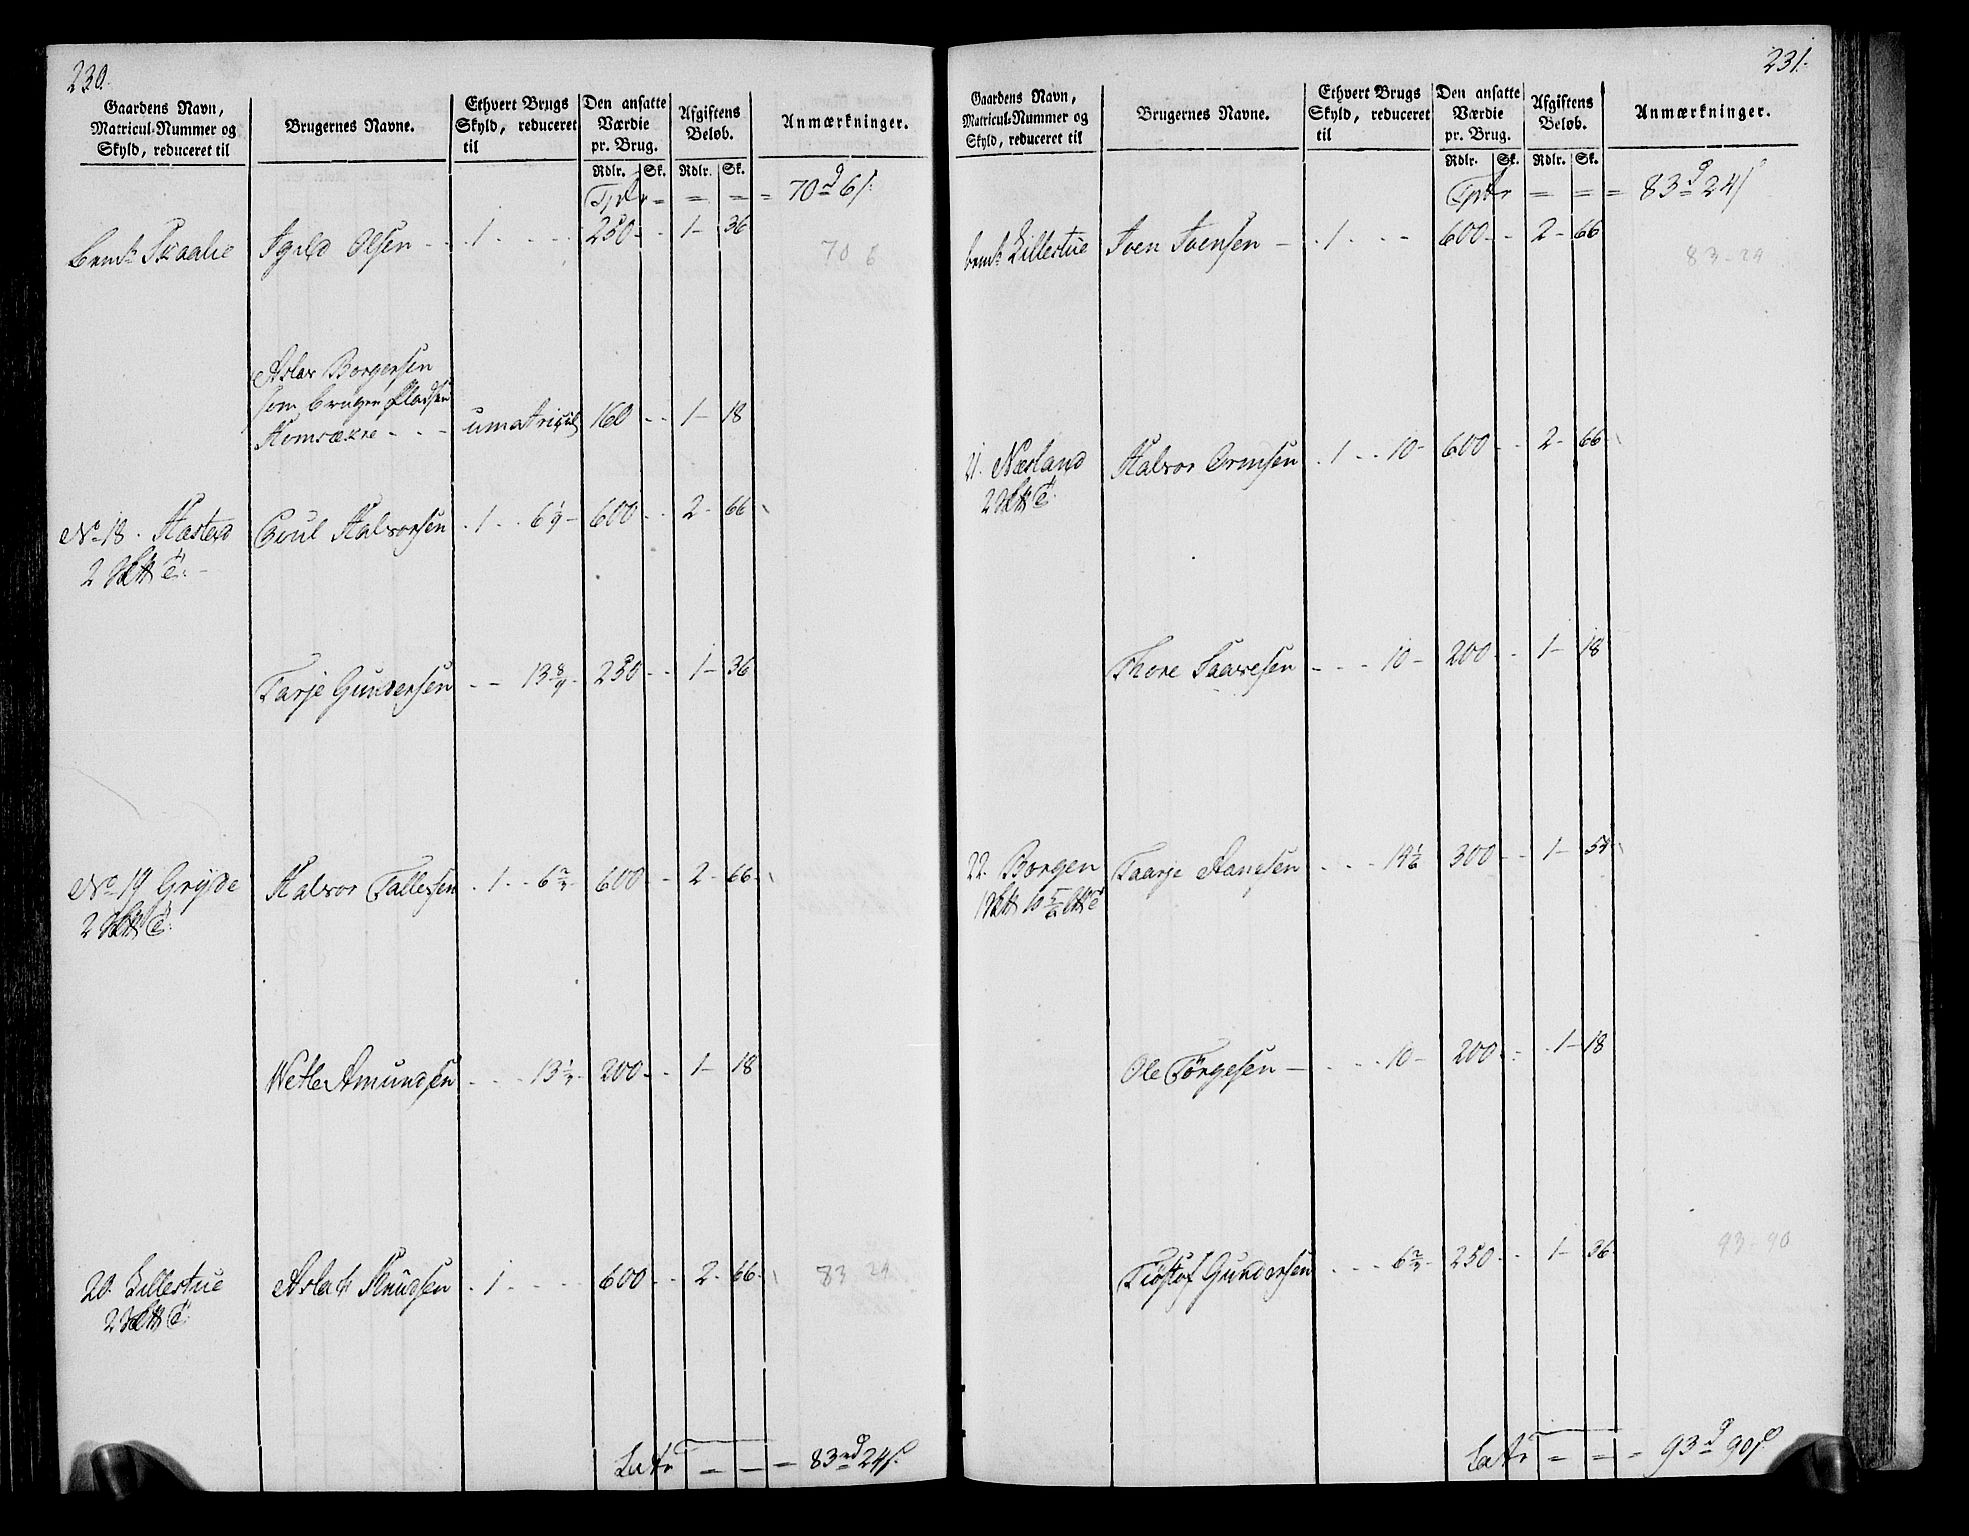 230.
Gaardens Navn,
Matricul-Nummer og
Skyld, reduceret til
Brugernes Navne.
Ethvert Brugs
Skyld, reduceret
til
Den ansatte
Værdie
pr. Brug.
Afgiftens
Beløb.
Anmærkninger.
Rdlr. Sk. Rdlr. Sk.
Tptr = = = 70 d 6 s.
bemt. Skaalie Igild Olsen - 1 - - - 250 - - 1 - 36
70 6
Aslak Borgersen
som bruger Pladsen
umatricul 160 - - 1 - 18
No 18. Hæsted Poul Halvorsen - 1 - - 6 1/9 - 600 - - 2 - 66
2
Tarje Gundersen - - 13 8/9 - 250 - - 1 - 36
No 19 Gryde Halvor Tallefsen - 1 - - 6 2/3 - 600 - - 2 - 66
2
Wetle Amundsen - - - 13 1/3 - 200 - - 1 - 18
20. Lillestue Aslak Knudsen - 1 - - - 600 - - 2 - 66
83 24
2
Latr = = = 83 rd 24 s.
231.
Gaardens Navn,
Matricul-Nummer og
Skyld, reduceret til
Brugernes Navne.
Ethvert Brugs
Skyld, reduceret
til
Den ansatte
Værdie
pr. Brug.
Afgiftens
Beløb.
Anmærkninger.
Rdlr. Sk. Rdlr. Sk.
Tptr = = = 83 d 24 s
bemt. Lillestue Sven Svensen - 1 - - - 600 - - 2 - 66
83 - 24
21. Næsland Halvor Ormsen - 1 - - 10 - 600 - - 2 - 66
2
Thore Saavesen - - - 10 - 200 - - 1 - 18
22. Borgen Taarje Hansen - - - 14 1/6 300 - - 1 - 54
Ole Torgesen - - - 10 - 200 - - 1 - 18
Tiøstof Gundersen - - - 6 2/3 - 250 - - 1 - 36
93 - 90
Latr = = = 93 d 90 s.